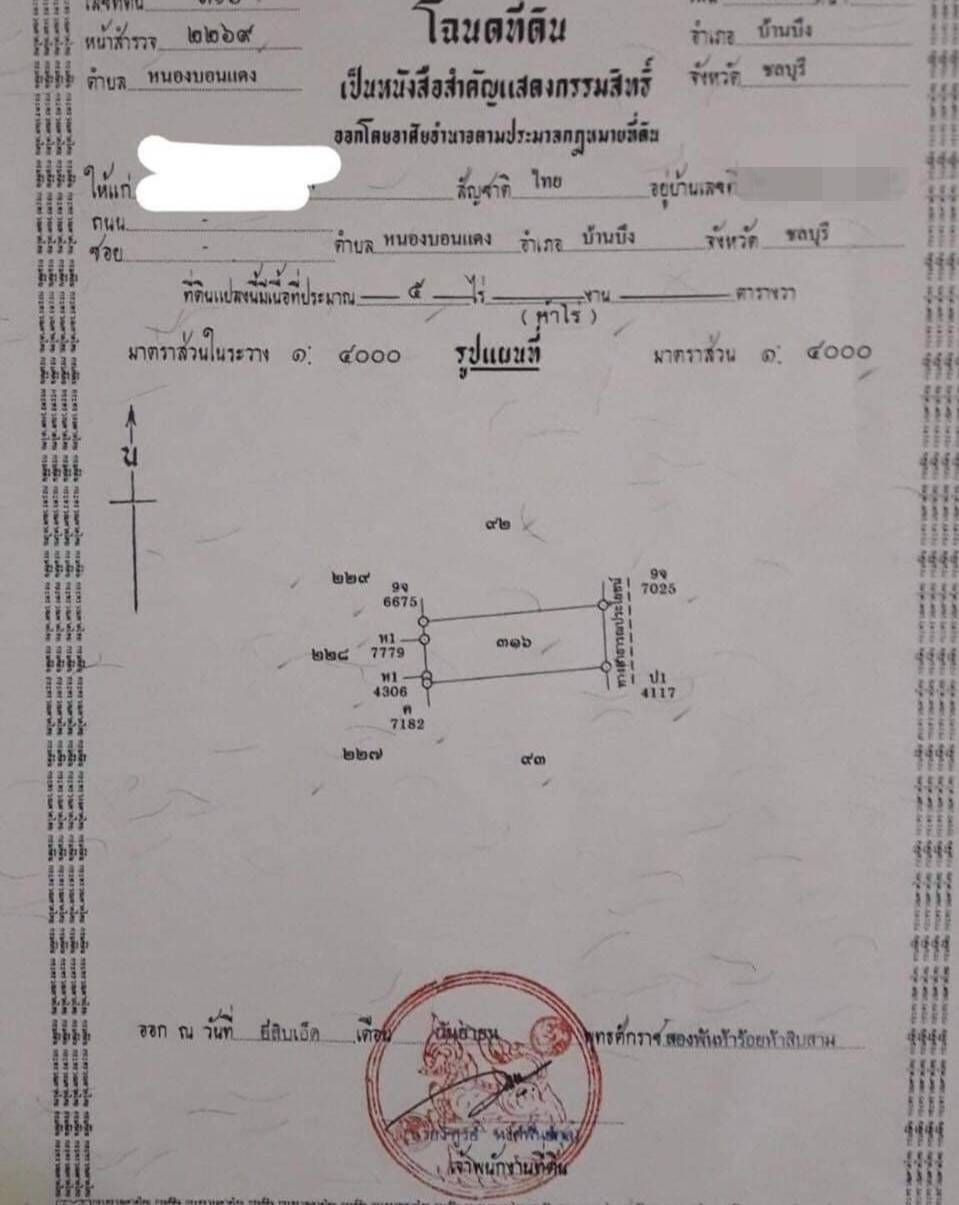 เลขที่ดิน
หน้าสำรวจ ๒๒๖๙ โฉนดที่ดิน อำเภอ บ้านบึง
ตำบล หนองบอนแดง เป็นหนังสือสำคัญแสดงกรรมสิทธิ์ จังหวัด ชลบุรี
ออกโดยอาศัยอำนาจตามประมวลกฎหมายที่ดิน
ให้แก่ สัญชาติ ไทย อยู่บ้านเลขที่
ถนน -
ซอย - ตำบล หนองบอนแดง อำเภอ บ้านบึง จังหวัด ชลบุรี
ที่ดินแปลงนี้มีเนื้อที่ประมาณ ๕ ไร่ งาน ตารางวา
( ห้าไร่ )
มาตราส่วนในระวาง ๑: ๔๐๐๐ รูปแผนที่ มาตราส่วน ๑: ๔๐๐๐
น
๙๒
๒๒๙
9จ
6675
9จ
7025
ทางสาธารณประโยชน์
ท1
7779
๓๑๖
๒๒๘
ท1
4306
ป1
4117
ค
7182
๒๒๗
๙๓
ออก ณ วันที่ ยี่สิบเอ็ด เดือน กันยายน พุทธศักราช สองพันห้าร้อยห้าสิบสาม
เจ้าพนักงานที่ดิน